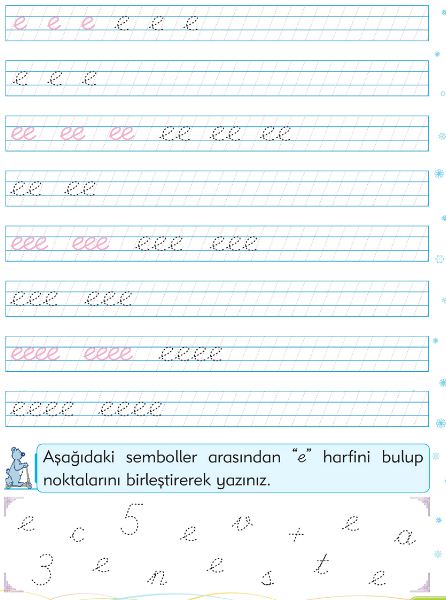 e e e e e e
e e e
ee ee ee ee ee ee
ee ee
eee eee eee eee
eee eee
eeee eeee eeee
eeee eeee
Aşağıdaki semboller arasından "e" harfini bulup
noktalarını birleştirerek yazınız.
e c 5 e v + e a
3 e n e s t e